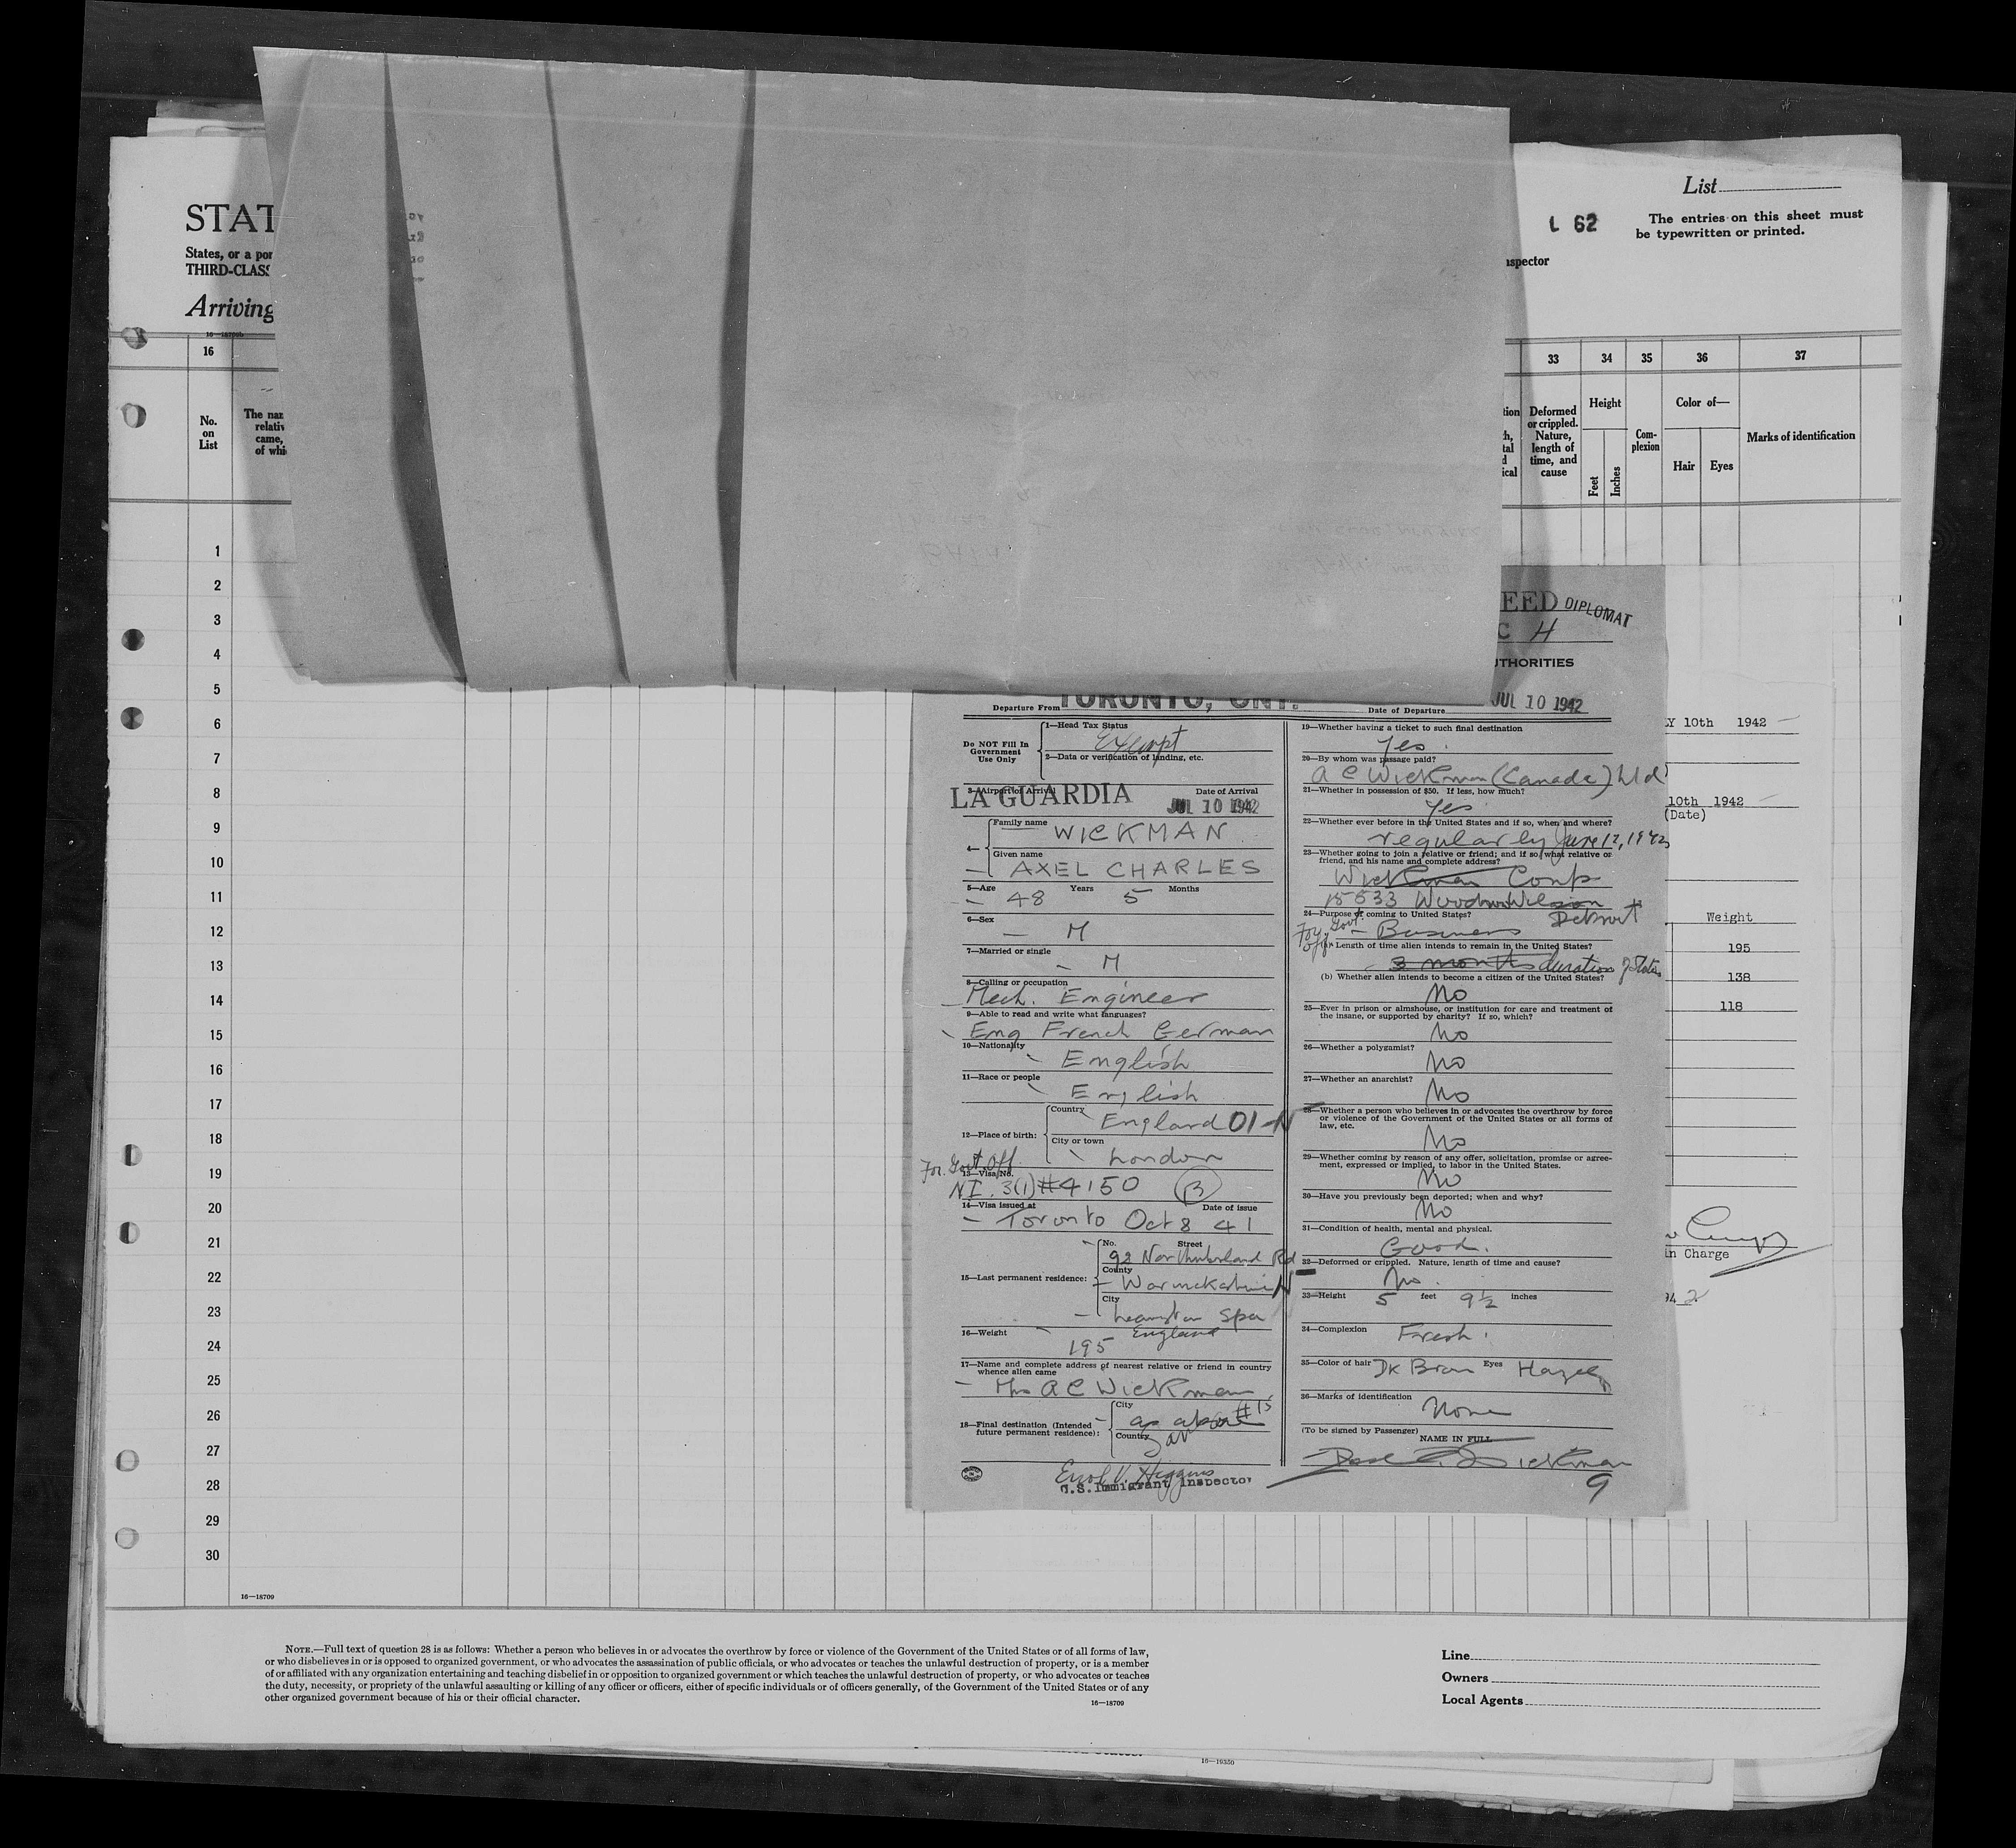 STAT
States, or a por
THIRD-CLASS
Arriving
16—18709b
List
L 62
The entries on this sheet must
be typewritten or printed.
nspector
16
No.
on
List
The nar
relativ
came,
of whi
33
34
35
36
37
Deformed
or crippled.
Nature,
length of
time, and
cause
Height
Feet
Inches
Com-
plexion
Color of—
Hair
Eyes
Marks of identification
1
2
3
4
5
6
7
8
9
10
11
12
13
14
15
16
17
18
19
20
21
22
23
24
25
26
27
28
29
30
16—18709
EED DIPLOMAT
C H
THORITIES
Departure From TORONTO, ONT.
Date of Departure JUL 10 1942
Do NOT Fill In
Government
Use Only
1—Head Tax Status
Exempt
2—Data or verification of landing, etc.
3—Airport of Arrival
Date of Arrival
LA GUARDIA JUL 10 1942
4—
Family name WICKMAN
Given name
AXEL CHARLES
5—Age 48 Years 5 Months
6—Sex
M
7—Married or single
M
8—Calling or occupation
Mech. Engineer
9—Able to read and write what languages?
Eng French German
10—Nationality
English
11—Race or people
English
12—Place of birth:
Country
England 01-N
City or town
London
For. Govt. Off
13—Visa No.
N I. 3(1) #4150 B
14—Visa issued at Date of issue
Toronto Oct 8 41
15—Last permanent residence:
No. Street
92 Northumberland Rd
County
Warwickshire
City
Leamington Spa
England
16—Weight
195
17—Name and complete address of nearest relative or friend in country
whence alien came
Mrs A C Wickman
18—Final destination (Intended
future permanent residence):
City
as above #15
Country
U.S. Immigrant Inspector
19—Whether having a ticket to such final destination
Yes.
20—By whom was passage paid?
A C Wickman (Canada) Ltd
21—Whether in possession of $50. If less, how much?
Yes
22—Whether ever before in the United States and if so, when and where?
regularly June 12, 1942
23—Whether going to join a relative or friend; and if so, what relative or
friend, and his name and complete address?
Wickman Corp
15533 Woodrow Wilson
Detroit
24—Purpose of coming to United States?
For. Govt. Off. Business
(a) Length of time alien intends to remain in the United States?
3 months duration of Status
(b) Whether alien intends to become a citizen of the United States?
No
25—Ever in prison or almshouse, or institution for care and treatment of
the insane, or supported by charity? If so, which?
No
26—Whether a polygamist?
No
27—Whether an anarchist?
No
28—Whether a person who believes in or advocates the overthrow by force
or violence of the Government of the United States or all forms of
law, etc.
No
29—Whether coming by reason of any offer, solicitation, promise or agree-
ment, expressed or implied, to labor in the United States.
No
30—Have you previously been deported; when and why?
No
31—Condition of health, mental and physical.
Good.
32—Deformed or crippled. Nature, length of time and cause?
No.
33—Height 5 feet 9½ inches
34—Complexion Fresh.
35—Color of hair Dk Brown Eyes Hazel
36—Marks of identification
None
(To be signed by Passenger)
NAME IN FULL
Wickman
9
Y 10th 1942
10th 1942
(Date)
Weight
195
138
118
in Charge
942
NOTE.—Full text of question 28 is as follows: Whether a person who believes in or advocates the overthrow by force or violence of the Government of the United States or of all forms of law,
or who disbelieves in or is opposed to organized government, or who advocates the assassination of public officials, or who advocates or teaches the unlawful destruction of property, or is a member
of or affiliated with any organization entertaining and teaching disbelief in or opposition to organized government or which teaches the unlawful destruction of property, or who advocates or teaches
the duty, necessity, or propriety of the unlawful assaulting or killing of any officer or officers, either of specific individuals or of officers generally, of the Government of the United States or of any
other organized government because of his or their official character.
16—18709
Line
Owners
Local Agents
16—19350